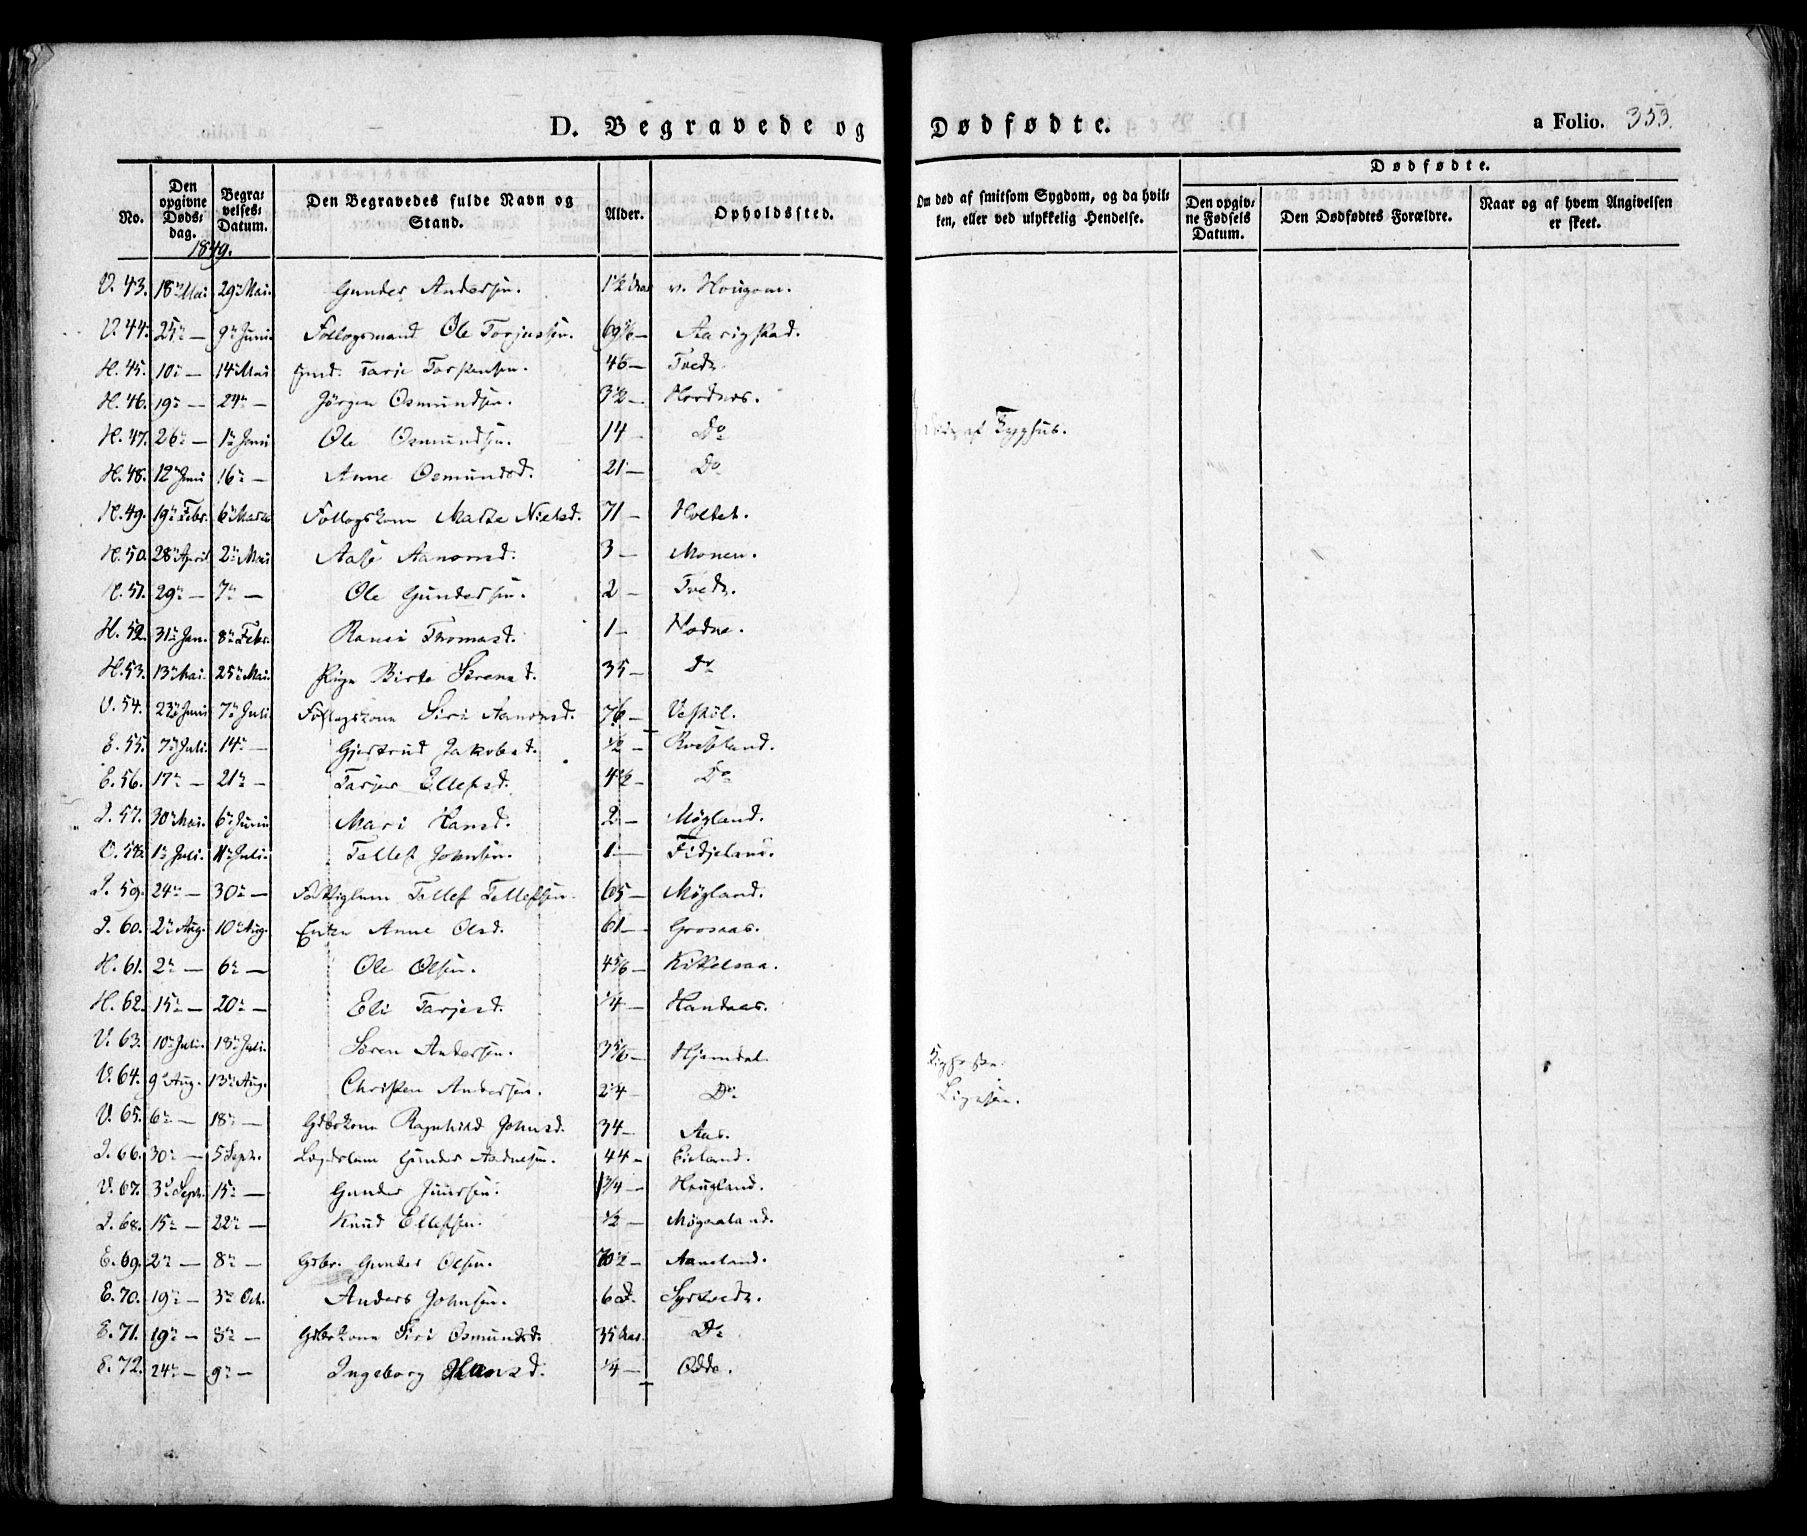 D. Begravede og Dødfødte. a Folio. 353.
No. Den opgivne Døds-dag. Begra-velses-Datum. Den Begravedes fulde Navn og Stand. Alder. Opholdssted. Om død af smitsom Sygdom, og da hvil-ken, eller ved ulykkelig Hendelse. Dødfødte. Den opgiv-ne Fødsels Datum. Den Dødfødtes Forældre. Naar og af hvem Angivelsen er skeet.
1849.
V. 43. 18de Mai 29de Mai. Gunder Andersen. 1½ Aar v. Hougom.
V. 44. 25de — 9de Juni. Follogsmand Ole Torjussen. 69 — Aarigstad.
H. 45. 10de — 14 Mai Tarje Torkensen. 46 — Tvedt.
H. 46. 19de — 24de — Jørgen Osmundsen. 3½ — Hordnes.
H. 47. 26de — 1ste Juni Ole Osmundsen. 14 — Do
H. 48. 12te Juni 16de — Anne Osmundsd. 21 — Do
H. 49. 19de Febr. 6te Marts Follogskone Marte Nielsd. 71 — Holtet.
H. 50. 28de April 2den Mai Aase Aanonsd. 3 — Monen.
H. 51. 29de — 7de — Ole Gundersen. 2 — Tvedt.
H. 52. 31te Jan. 8de Febr. Ranei Thomasd. 1 — Hodne.
H. 53. 13de Mai. 25de Mai. Pige Birte Sørensd. 35 — Do
V. 54. 23de Juni 7de Juli. Follogskone Siri Aanonsd. 76 — Veshøl.
E. 55. 7de Juli. 14de — Gjertrud Jakobsd. ½ — Rosseland.
E. 56. 17de — 21de — Tarjer Ellefsd. 4½ — Do
I. 57. 30te Mai. 6te Juni Mari Hansd. 2 — Møgland.
V. 58. 1ste Juli. 11te Juli. Tellef Johnsen. 1 — Fidjeland.
I. 59. 24de — 30te — Fattiglem Tellef Tellefsen. 65 — Møgland.
I. 60. 2den Aug. 10de Aug. Enken Anne Olsd. 61 — Grosaas.
H. 61. 2den — 6te — Ole Olsen. 4 5/6 — Kittelsaa.
H. 62. 15de — 20de — Eli Tarjesd. ¼ — Handaas.
V. 63. 10de Juli. 18de Juli. Søren Andersen. 3 5/6 — Hjemdal.
V. 64. 9de Aug. 13de Aug. Christen Andersen. 2¼ Do Ligesen.
V. 65. 6te — 18de — Gdbrkone Ragnhild Johnsd. 34 — Aas.
I. 66. 30te — 5 Septr. Lægdslem Gunder Aadnesen. 44 — Eieland.
V. 67. 3die Septr. 15de — Gunder Juursen. 1¾ — Hougland.
I. 68. 15de — 22de — Knud Ellefsen. ½ — Møgaaland.
E. 69. 2den — 8de — Gdbr. Gunder Olsen. 70½ — Aaneland.
E. 70. 19de — 3die Oct. Anders Johnsen. 6 D. Syrtvedt.
E. 71. 19de — 8de — Gdbrkone Siri Osmundsd. 35 Aar. Do
E. 72. 24de — 9de — Ingeborg Hansd. ¼ — Odde.